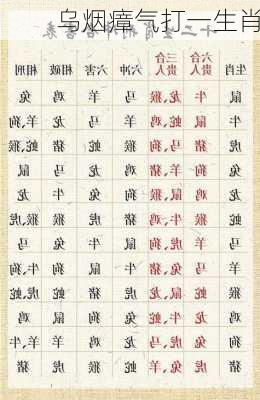 乌烟瘴气打一生肖
十二生肖
生肖 六合贵人 三合贵人 六冲 六害 相破 相刑
鼠 牛 龙,猴 马 羊 鸡 兔
牛 鼠 蛇,鸡 羊 马 龙 狗,羊
虎 猪 马,狗 猴 蛇 猪 蛇,猴
兔 狗 羊,猪 鸡 龙 马 鼠
龙 鸡 鼠,猴 狗 兔 牛 龙
蛇 猴 牛,鸡 猪 虎 猴 猴,虎
马 羊 虎,狗 鼠 牛 兔 马
羊 马 兔,猪 牛 鼠 狗 牛,狗
猴 蛇 鼠,龙 虎 猪 蛇 虎,蛇
鸡 龙 蛇,牛 兔 狗 鼠 鸡
狗 兔 虎,马 龙 鸡 羊 羊,牛
猪 虎 兔,羊 蛇 猴 虎 猪